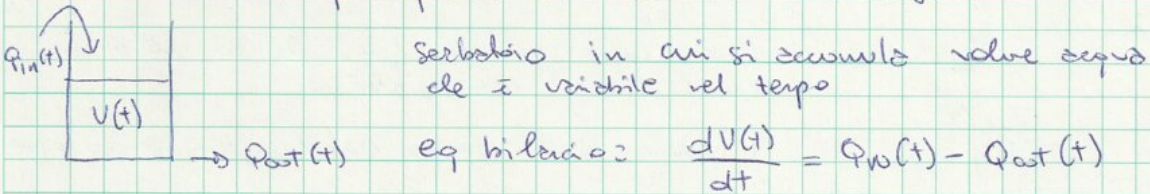 Qin(t)
serbatoio in cui si accumula volume acqua
che è variabile nel tempo
V(t)
→ Qout(t)
eq bilancio: dV(t)/dt = Qin(t) - Qout(t)